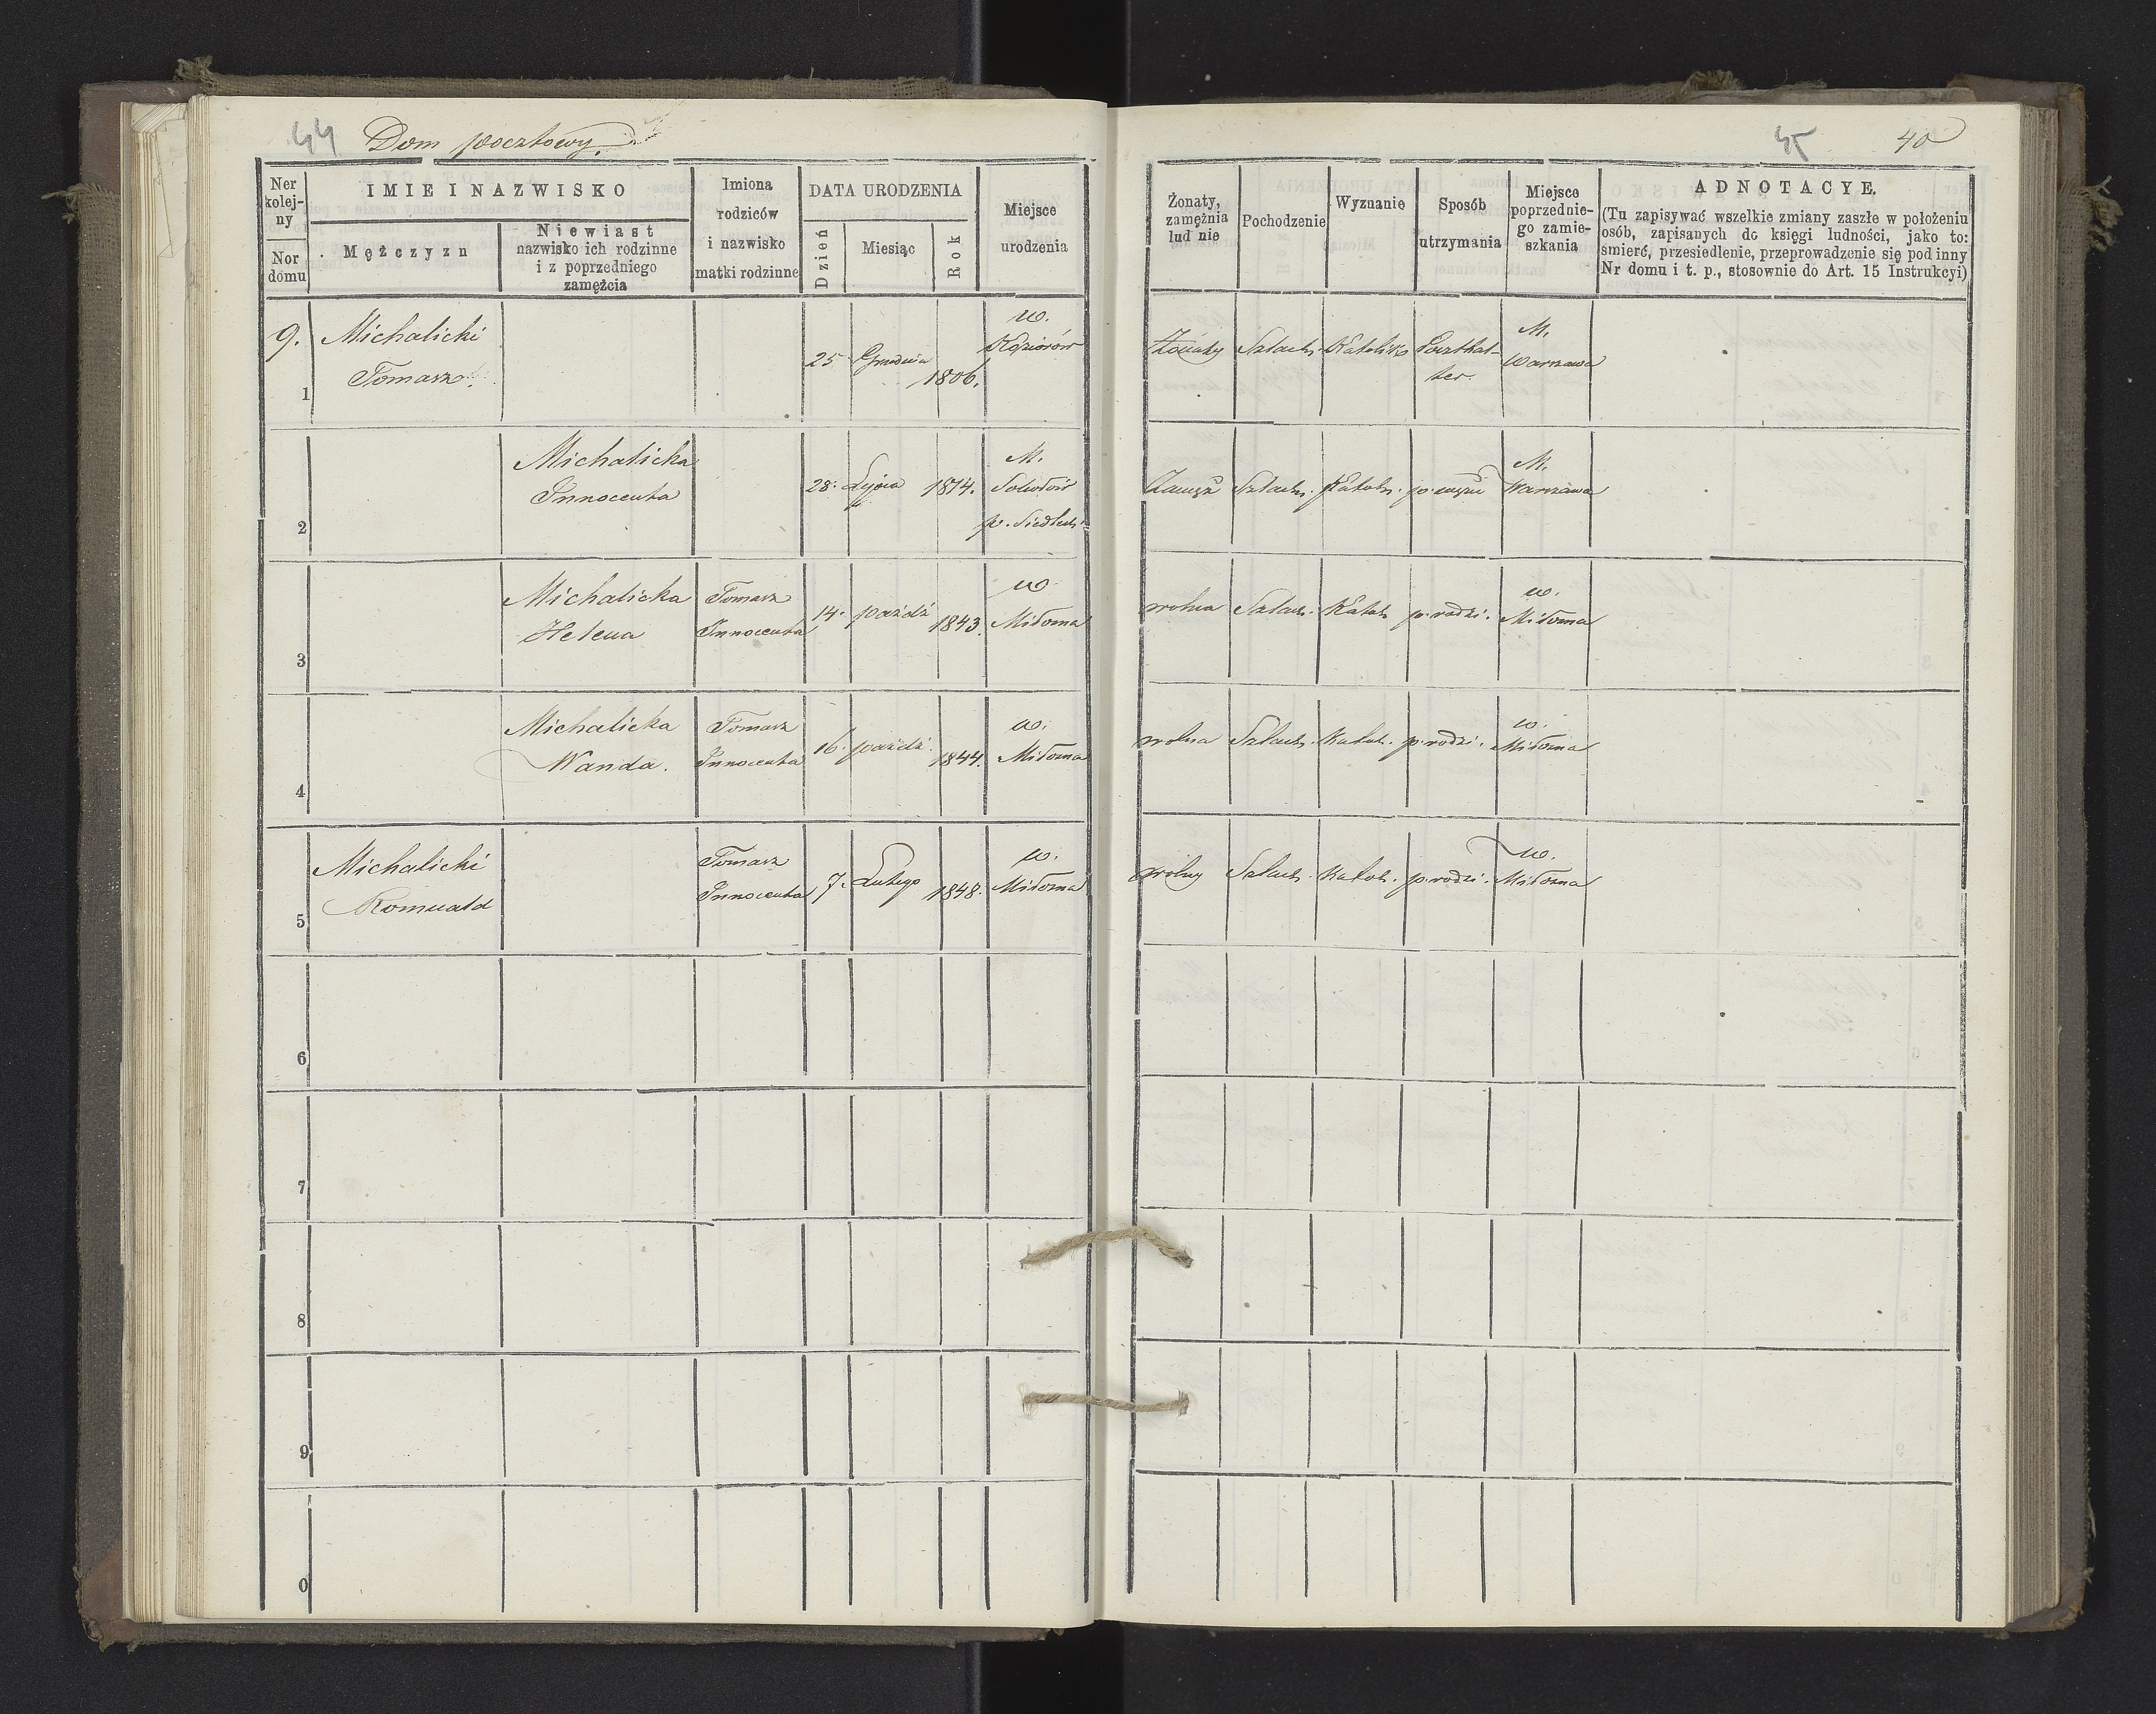 44 Dom pocztowy.
45 40
Ner kolej-ny
Nor domu
IMIE I NAZWISKO
Mężczyzn
Niewiast
nazwisko ich rodzinne
i z poprzedniego
zamęźcia
Imiona
rodziców
i nazwisko
matki rodzinne
DATA URODZENIA
Dzień
Miesiąc
Rok
Miejsce
urodzenia
Żonaty,
zamężnia
lud nie
Pochodzenie
Wyznanie
Sposób
utrzymania
Miejsce
poprzednie-
go zamie-
szkania
ADNOTACYE.
(Tu zapisywać wszelkie zmiany zaszłe w położeniu
osób, zapisanych do księgi ludności, jako to:
śmierć, przesiedlenie, przeprowadzenie się pod inny
Nr domu i t. p., stosownie do Art. 15 Instrukcyi)
9. Michalicki
Tomasz.
1
25 Grudnia 1806.
w.
Żonaty Szlach. Katolik Poczthal-
ter.
M.
Warszawa
Michalicka
Innocenta
2
28. Lipca 1814.
M.
p. Siedlech
Zamęż Szlach. Katol. p. mężu
M.
Warszawa
Michalicka
Helena
3
Tomasz
Innocenta
14. paźdź 1843.
w
Miłosna
wolna Szlach. Katol. p. rodzi.
w.
Miłosna
Michalicka
Wanda.
4
Tomasz
Innocenta
16. paźdź. 1844.
w.
Miłosna
wolna Szlach. Katol. p. rodzi.
w.
Miłosna
Michalicki
Romuald
5
Tomasz
Innocenta
7. Lutego 1848.
w.
Miłosna
wolny Szlach. Katol. p. rodzi.
w.
Miłosna
6
7
8
9
0